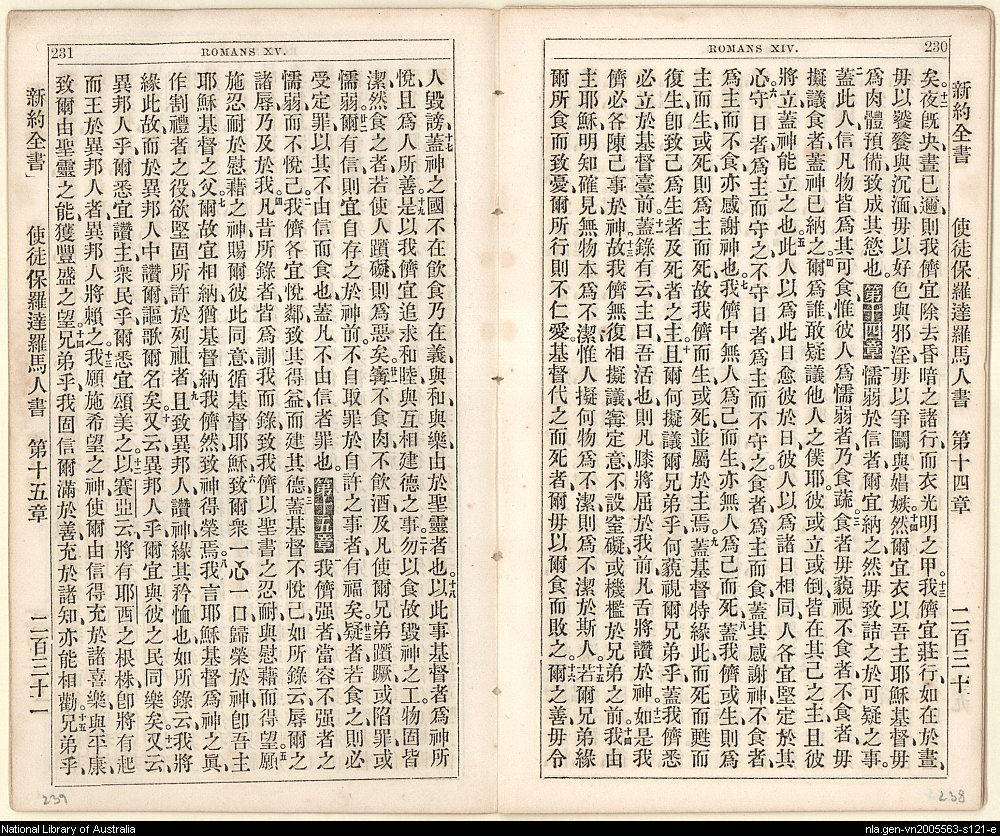 ROMANS XIV.
230
新約全書
使徒保羅達羅馬人書
第十四章
二百三十
矣夜旣央晝已邇則我儕宜除去昏暗之諸行而衣光明之甲我儕宜莊行如在於晝
毋以饕餮與沉湎毋以好色與邪淫毋以爭鬬與娼嫉然爾宜衣以吾主耶穌基督毋
爲肉體預備致成其慾也。第十四章懦弱於信者爾宜納之然毋致詰之於可疑之事
蓋此人信凡物皆爲其可食惟彼人爲懦弱者乃食蔬食者毋藐視不食者不食者毋
擬議食者蓋神已納之爾爲誰敢疑議他人之僕耶彼或立或倒皆在其己之主且彼
將立蓋神能立之也此人以爲此日愈彼於日彼人以爲諸日相同人各宜堅定於其
心守日者爲主而守之不守日者爲主而不守之食者爲主而食蓋其感謝神不食者
爲主而不食亦感謝神也我儕中無人爲己而生亦無人爲己而死蓋我儕或生則爲
主而生或死則爲主而死故我儕而生或死並屬於主焉蓋基督特緣此而死而甦而
復生卽致己爲生者及死者之主且爾何擬議爾兄弟乎何藐視爾兄弟乎蓋我儕悉
必立於基督臺前蓋錄有云主曰吾活也則凡膝將屈於我前凡舌將讚於神如是我
儕必各陳己事於神故我儕無復相擬議寗定意不設窒礙或機檻於兄弟之前我由
主耶穌明知確見無物本爲不潔惟人擬何物爲不潔則爲不潔於斯人若爾兄弟緣
爾所食而致憂爾所行則不仁愛基督代之而死者爾毋以爾食而敗之爾之善毋令
238
231
ROMANS XV.
人毀謗蓋神之國不在飮食乃在義與和與樂由於聖靈者也以此事基督者爲神所
悅且爲人所善是以我儕宜追求和睦與互相建德之事勿以食故毀神之工物固皆
潔然食之者若使人躓礙則爲惡矣寗不食肉不飮酒及凡使爾兄弟躓蹶或陷罪或
懦弱爾有信則宜自存之於神前不自取罪於自許之事者有福矣疑者若食之則必
受定罪以其不由信而食也蓋凡不由信者罪也第十五章我儕强者當容不强者之
懦弱而不悅己我儕各宜悅鄰致其得益而建其德蓋基督不悅己如所錄云辱爾之
諸辱乃及於我凡昔所錄者皆爲訓我而錄致我儕以聖書之忍耐與慰藉而得望願
施忍耐於慰藉之神賜爾彼此同意循基督耶穌致爾衆一心一口歸榮於神卽吾主
耶穌基督之父爾故宜相納猶基督納我儕然致神得榮焉我言耶穌基督爲神之眞
作制禮者之役欲堅固所許於列祖者且致異邦人讚神緣其矜恤也如所錄云我將
緣此故而於異邦人中讚爾謳歌爾名矣又云異邦人乎爾宜與彼之民同樂矣又云
異邦人乎爾悉宜讚主衆民乎爾悉宜頌美之以賽亞云將有耶西之根株卽將有起
而王於異邦人者異邦人將賴之我願施希望之神使爾由信得充於諸喜樂與平康
致爾由聖靈之能獲豐盛之望兄弟乎我固信爾滿於善充於諸知亦能相勸兄弟乎
新約全書
使徒保羅達羅馬人書
第十五章
二百三十一
239
National Library of Australia
nla.gen-vn2005563-s121-e